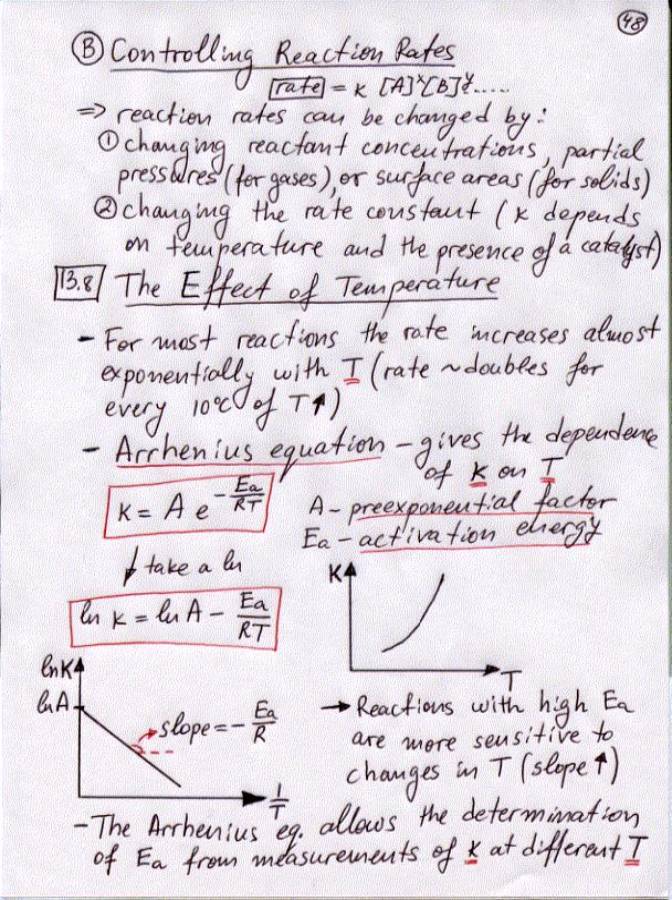 48
Ⓑ Controlling Reaction Rates
rate = k [A]ˣ[B]ʸ.....
⇒ reaction rates can be changed by:
① changing reactant concentrations, partial
pressures (for gases), or surface areas (for solids)
② changing the rate constant (k depends
on temperature and the presence of a catalyst)
13.8 The Effect of Temperature
- For most reactions the rate increases almost
exponentially with T (rate ~doubles for
every 10°C of T↑)
- Arrhenius equation - gives the dependence
of k on T
k = A e^(-Ea/RT)
A - preexponential factor
Ea - activation energy
↓ take a ln
ln k = ln A - Ea/RT
K
T
lnK
lnA
slope = - Ea/R
1/T
→ Reactions with high Ea
are more sensitive to
changes in T (slope↑)
- The Arrhenius eq. allows the determination
of Ea from measurements of k at different T